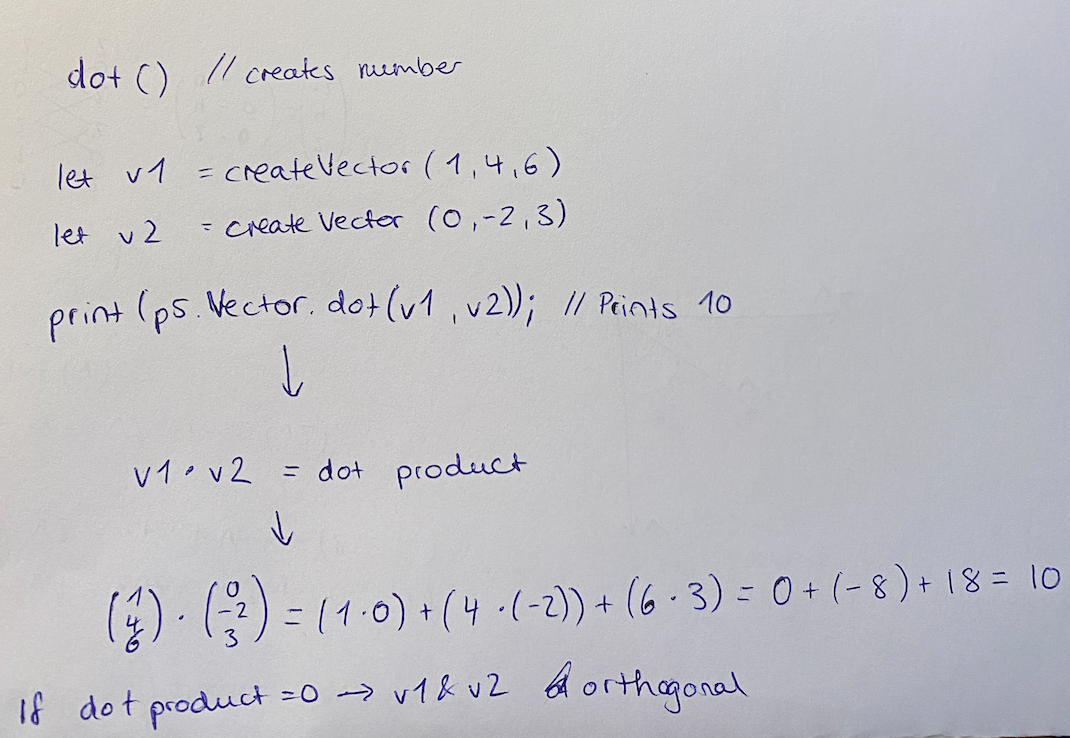 dot () // creates number
let v1 = createVector (1,4,6)
let v2 = create Vector (0,-2,3)
print (p5. Vector. dot(v1, v2)); // Prints 10
↓
v1 · v2 = dot product
↓
(1 4 6) · (0 -2 3) = (1·0) + (4 ·(-2)) + (6 · 3) = 0 + (-8) + 18 = 10
If dot product = 0 → v1 & v2 orthogonal